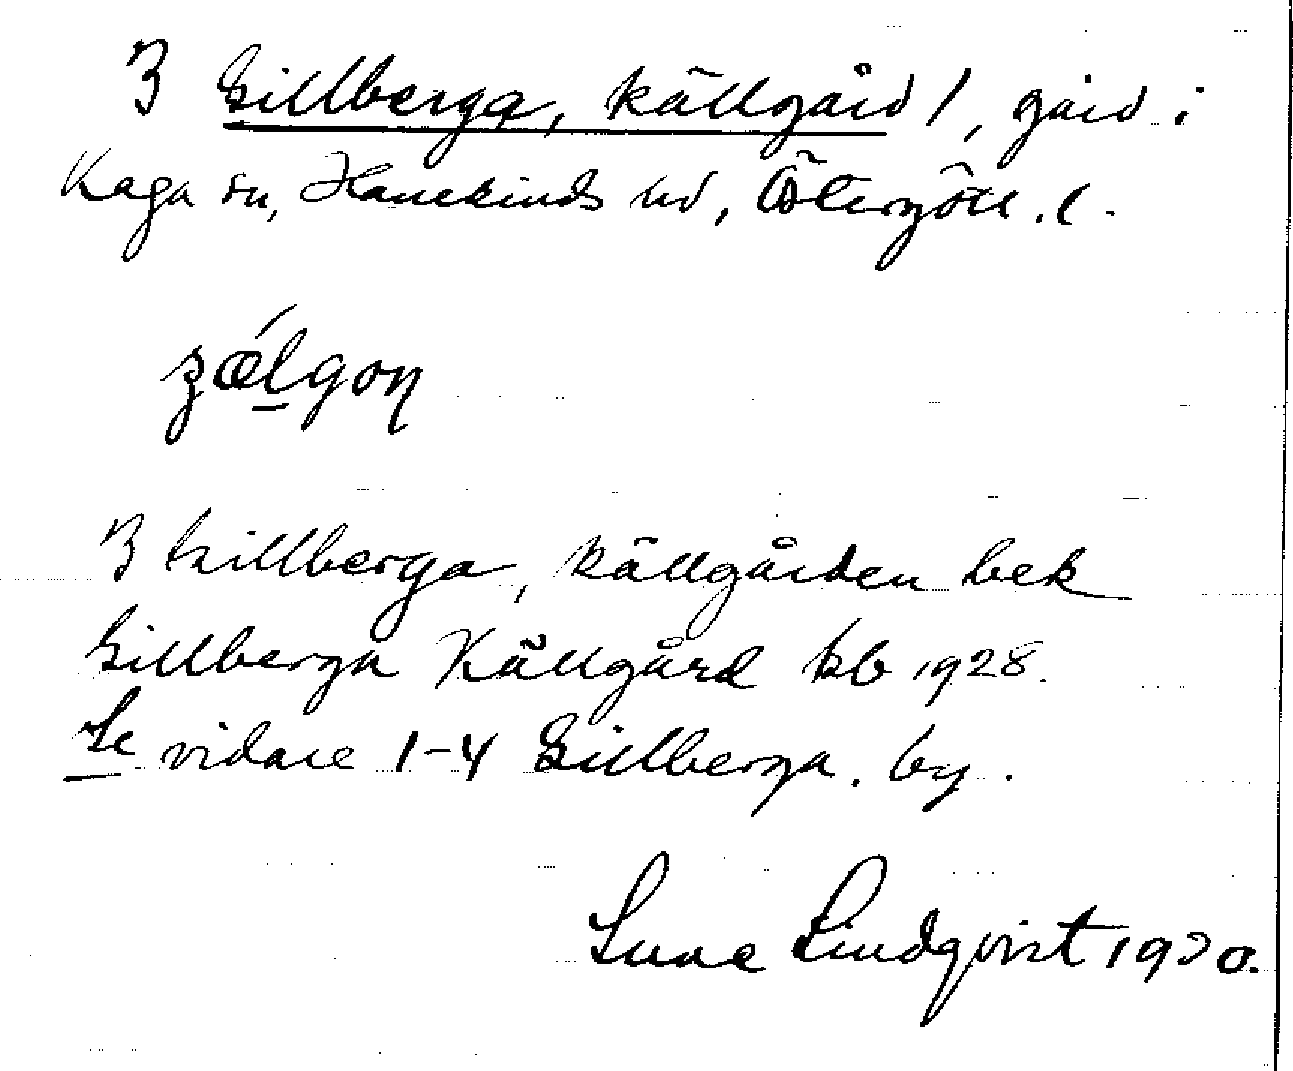 3 Gillberga, Källgård /, gård i
Kaga sn, Hanekinds hd, Östergötl. l.
zælgoɳ
3 Gillberga, Källgården bek
Gillberga Källgård kb 1928.
Se vidare 1-4 Gillberga. by.
Sune Lindqvist 1920.